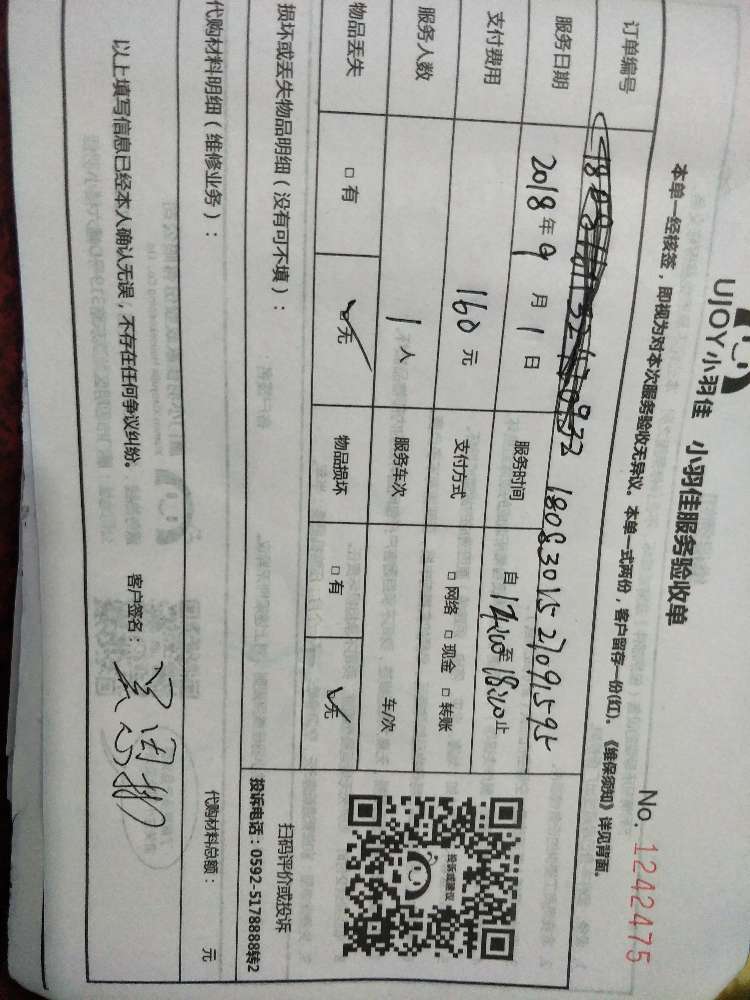 UJOY小羽佳 小羽佳服务验收单
No. 1242475
本单一经核签，即视为对本次服务验收无异议。本单一式两份，客户留存一份(红)。《维保须知》详见背面。
订单编号 1808301527091595
服务日期 2018年9月1日 服务时间 自 14:00 至 18:00 止
支付费用 160元 支付方式 □ 网络 □ 现金 □ 转账
服务人数 1人 服务车次 车/次
物品丢失 □ 有 □ 无 物品损坏 □ 有 □ 无
投诉或建议
扫码评价或投诉
投诉电话：0592-5178888转2
损坏或丢失物品明细（没有可不填）：
代购材料明细（维修业务）： 代购材料总额： 元
以上填写信息已经本人确认无误，不存在任何争议纠纷。 客户签名：